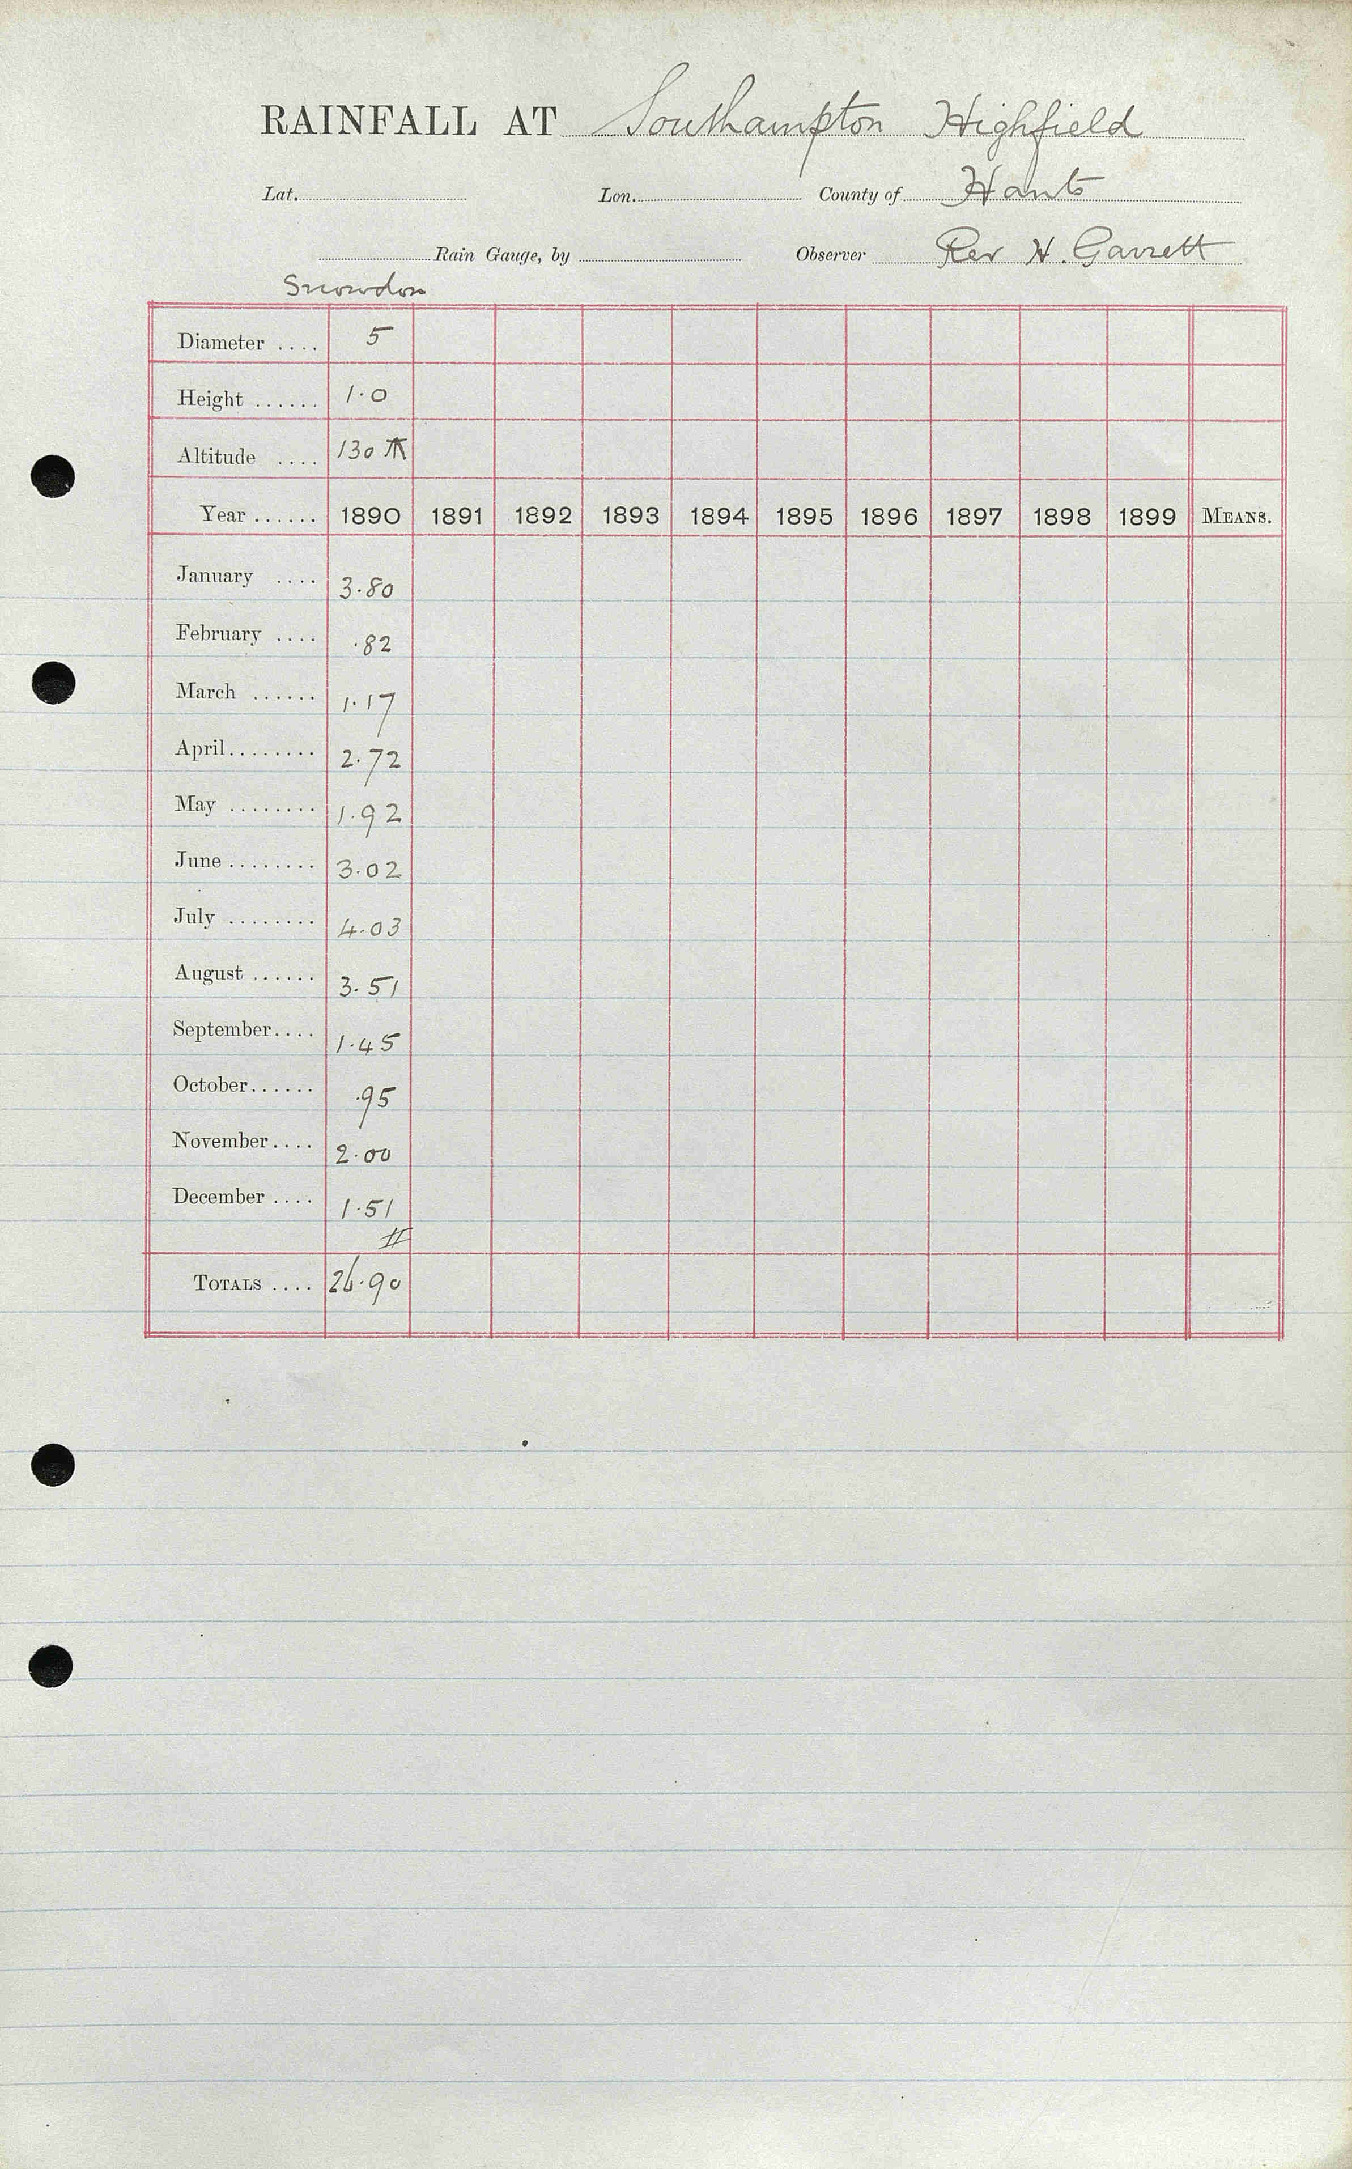 RAINFALL AT Southampton Highfield
Lat. Lon. County of Hants
Rain Gauge, by Observer Rev H. Garrett
Snowdon
Diameter .... 5
Height ...... 1.0
Altitude .... 130
Year ...... 1890 1891 1892 1893 1894 1895 1896 1897 1898 1899 MEANS.
January .... 3.80
February .... .82
March ...... 1.17
April........ 2.72
May ........ 1.92
June ........ 3.02
July ........ 4.03
August ...... 3.51
September.... 1.45
October...... .95
November.... 2.00
December .... 1.51
TOTALS .... 26.90